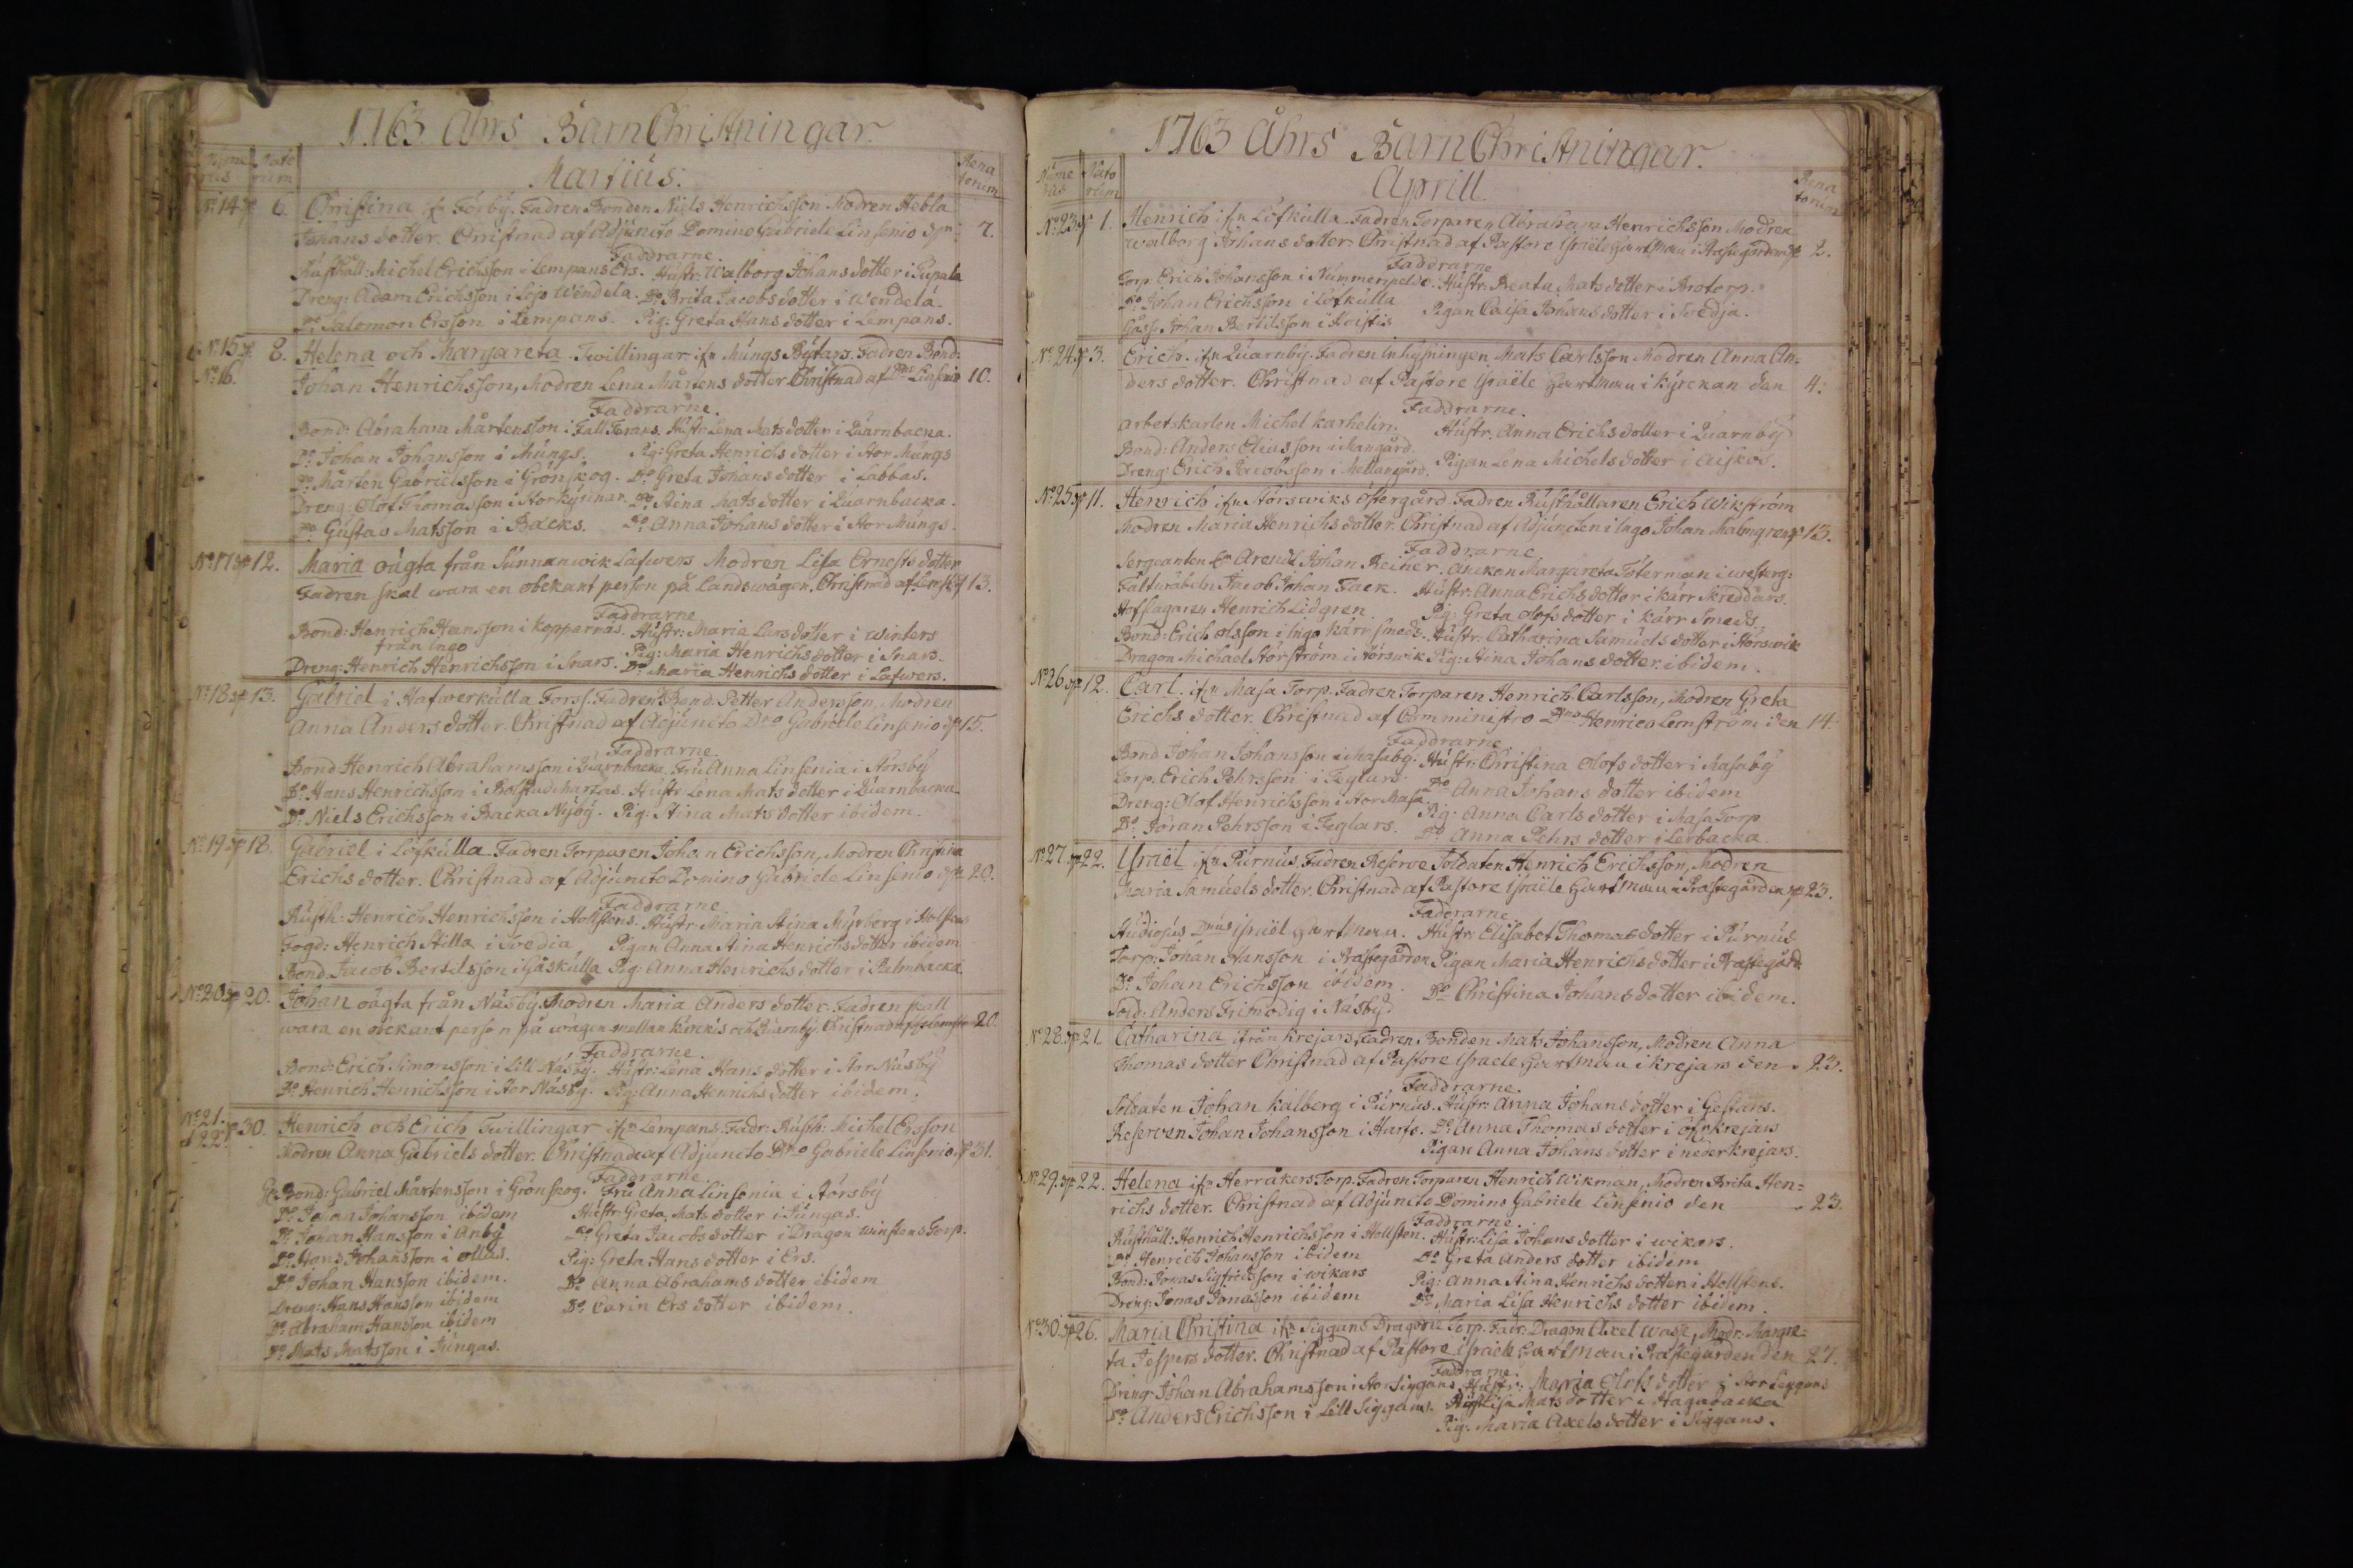 1763 Åhrs BarnChristningar.
Nume rus
Nato rum
Martius.
Rena torum
No. 14. 6. Christina ifrn Förby. Fadren Bonden Niels Henrichsson Modren Hebla
Johans dotter. Christnad af Adjuncto Domino Gabriele Linsenio dn 7.
Faddrarne
Rusthåll: Michel Erichsson i Lempans Ers. Hustr: Walborg Johans dotter i Pupala
Dreng: Adam Erichsson i Lojo Wendela. Do. Brita Jacobs dotter i Wendela.
Do Salomon Ersson i Lempans. Pig: Greta Hans dotter i Lempans.
No. 15. 8. Helena och Margareta Twillingar ifrn Mungs Bytars. Fadren Bond:
No. 16. Johan Henrichsson, Modren Lena Mårtens dotter Christnad af Dno Linsenio 10.
Faddrarne.
Bond: Abraham Mårtensson i Tall Ferars. Hustr: Lena Mats dotter i Quarnbacka.
Do Johan Johansson i Mungs. Pig: Greta Henrichs dotter i Stor Mungs
Do Mårten Gabrielsson i Grönskog. Do Greta Johans dotter i Labbas.
Dreng: Olof Thomasson i Storkyrinar. Do. Stina Mats dotter i Quarnbacka.
Do Gustav Matsson i Backs. Do. Anna Johans dotter i Stor Mungs.
No. 17 12. Maria oägta från Sunnanwik Lafwers Modren Lisa Ernests dotter
Fadren skal wara en obekant person på landswägen, Christnad af 13.
Faddrarne
Bond: Henrich Hansson i Kopparnäs. Hustr: Maria Lars dotter i Winters
från Ingo Pig: Maria Henrichs dotter i Snars.
Dreng: Henrich Henrichsson i Snars. Do Maria Henrichs dotter i Lafwers.
No. 18 13. Gabriel i Hafwerkulla Forss. Fadren Bond. Petter Andersson, Modren
Anna Anders dotter. Christnad af Adjuncto Dno Gabriele Linsenio d. 15.
Faddrarne.
Bond Henrich Abrahamsson i Quarnbacka. Fru Anna Linsenia i Störsby
Do. Hans Henrichsson i Bolstad Marzas. Hustr Lena Mats dotter i Quarnbacka
Do. Niels Erichsson i Backa Nyby. Pig: Stina Mats dotter ibidem.
No. 19 18. Gabriel i Löfkulla Fadren Torparen Johan Erichsson, Modren Christina
Erichs dotter. Christnad af Adjuncto Domino Gabriele Linsenio dn 20.
Faddrarne
Rusth: Henrich Henrichsson i Hollstens. Hustr Maria Stina Myrberg i Holstens
Fogd: Henrich Stilla i Svedia Pigan Anna Stina Henrichs dotter ibidem
Bond. Jacob Bertilsson i Gåskulla Pig: Anna Henrichs dotter i Palmbacka
No. 20. 20. Johan oägta från Näsby. Modren Maria Anders dotter. Fadren skall
wara en obekant person på wägen mellan Kyrckis och Quarnby, Christnad 20.
Faddrarne.
Bond: Erich Simonsson i Lill Näsby. Hustr: Lena Hans dotter i Stor Näsby
Do. Henrich Henrichsson i Stor Näsby. Pig: Anna Henrichs dotter ibidem.
No. 21. 22. 30. Henrich och Erich Twillingar ifrn Lempans. Fadr: Rusth: Michel Ersson
Modren Anna Gabriels dotter. Christnade af Adjuncto Dno Gabriele Linsenio, 31.
Faddrarne.
Bond: Gabriel Mårtensson i Grönskog. Fru Anna Linsenia i Störsby
Do. Johan Johansson ibidem Hustr: Greta Mats dotter i Jungas.
Do. Johan Hansson i Anby Do Greta Jacobs dotter i Dragon Winstens Torp.
Do. Hans Johansson i Ollas. Pig: Greta Hans dotter i Ers.
Do. Johan Hansson ibidem. Do. Anna Abrahams dotter ibidem
Dreng: Hans Hansson ibidem Do. Carin Ers dotter ibidem.
Do. Abraham Hansson ibidem
Do. Mats Matsson i Jungas.
1763 Åhrs BarnChristningar.
Nume rus
Nato rum
Aprill
Rena torum
No. 23. 1. Henrich ifrn Löfkulla. Fadren Torparen Abraham Henrichsson Modren
Walborg Johans dotter. Christnad af Pastore Israële Hartman i Prästegården 2.
Faddrarne
Torp. Erich Johansson i Nummenpeldo. Hustr: Beata Mats dotter i Brotorp.
Do. Johan Erichsson i Löfkulla Pigan Caisa Johans dotter i Svedja.
Gåsse Johan Bertilsson i Hoistis
No. 24. 3. Erich. ifrn Quarnby. Fadren Inhysningen Mats Carlsson Modren Anna An-
ders dotter. Christnad af Pastore Israële Hartman i Kyrckan den 4.
Faddrarne.
Arbetskarlen Michel Karhelin. Hustr. Anna Erichs dotter i Quarnby
Bond: Anders Eliusson i Mangård. Pigan Lena Michels dotter i Aiskos.
Dreng: Erich Jacobsson i Mellangård.
No. 25 11. Henrich ifrn Störswiks Östergård. Fadren Rusthållaren Erich Wikström
Modren Maria Henrichs dotter. Christnad af Adjuncten i Ingo Johan Malmgren 13.
Faddrarne.
Sergeanten Arendt Johan Reiner. Änckan Margareta Töterman i Westerg:
Fältwäbeln Jacob Johan Fack. Hustr: Anna Erichs dotter i Kärr Skreddars.
Hofslagaren Henrich Lidgren Pig: Greta Olofs dotter i Kärr Smeds.
Bond: Erich Olsson i Ingo Kärr Smeds. Hustr: Catharina Samuels dotter i Störswik
Dragon Michael Störström i Störswik Pig: Stina Johans dotter ibidem.
No. 26 12. Carl. ifrn Masa Torp. Fadren Torparen Henrich Carlsson, Modren Greta
Erichs dotter. Christnad af Comministro Dno Henrico Lemström den 14.
Faddrarne
Bond Johan Johansson i Masaby. Hustr: Christina Olofs dotter i Masaby
Torp. Erich Pehrsson i Teglars. Do Anna Johans dotter ibidem
Dreng: Olof Henrichsson i Stor Masa Pig: Anna Carls dotter i Masa Torp
Do. Jöran Pehrsson i Teglars. Do Anna Pehrs dotter i Lerbacka.
No. 27. 22. Israël ifrn Purnus. Fadren Reserve Soldaten Henrich Erichsson, Modren
Maria Samuels dotter. Christnad af Pastore Israële Hartman i Prästegården 23.
Faddrarne
Studiosus Dnus Israël Hartman. Hustr: Elisabet Thomas dotter i Purnus
Torp: Johan Hansson i Prästegården Pigan Maria Henrichs dotter i Prästegård.
Do. Johan Erichsson ibidem. Do Christina Johans dotter ibidem.
Sold: Anders Frimodig i Näsby
No. 28. 21. Catharina ifrån Krejars, Fadren Bonden Mats Johansson, Modren Anna
Thomas dotter Christnad af Pastore Israele Hartman i Krejars den 23.
Faddrarne.
Soldaten Johan Kalberg i Purnus. Hustr: Anna Johans dotter i Gestans.
Reserven Johan Johansson i Harfs. Do. Anna Thomas dotter i öfrkrejars
Pigan Anna Johans dotter i nederkrejars.
No. 29. 22. Helena ifrn Herråkers Torp. Fadren Torparen Henrich Wikman, Modren Brita Hen-
richs dotter. Christnad af Adjuncto Domino Gabriele Linsenio den 23.
Faddrarne.
Rusthåll: Henrich Henrichsson i Hollsten. Hustr: Lisa Johans dotter i Wikars.
Do Henrich Johansson ibidem Do. Greta Anders dotter ibidem
Bond: Jonas Sigfridsson i Wikars Pig: Anna Stina Henrichs dotter i Hollstens.
Dreng: Jonas Jonasson ibidem Do. Maria Lisa Henrichs dotter ibidem.
No. 30 26. Maria Christina ifrn Siggans Dragone Torp. Fadr. Dragon Axel Wase, Modr. Margre-
ta Jespers dotter. Christnad af Pastore Israele Hartman i Prästegården den 27.
Faddrarne.
Dreng Johan Abrahamsson i Stor Siggans Hustr: Maria Olofs dotter i Stor Siggans
Do. Anders Erichsson i Lill Siggans. Lisa Mats dotter i Hagabacka
Pig: Maria Axels dotter i Siggans.